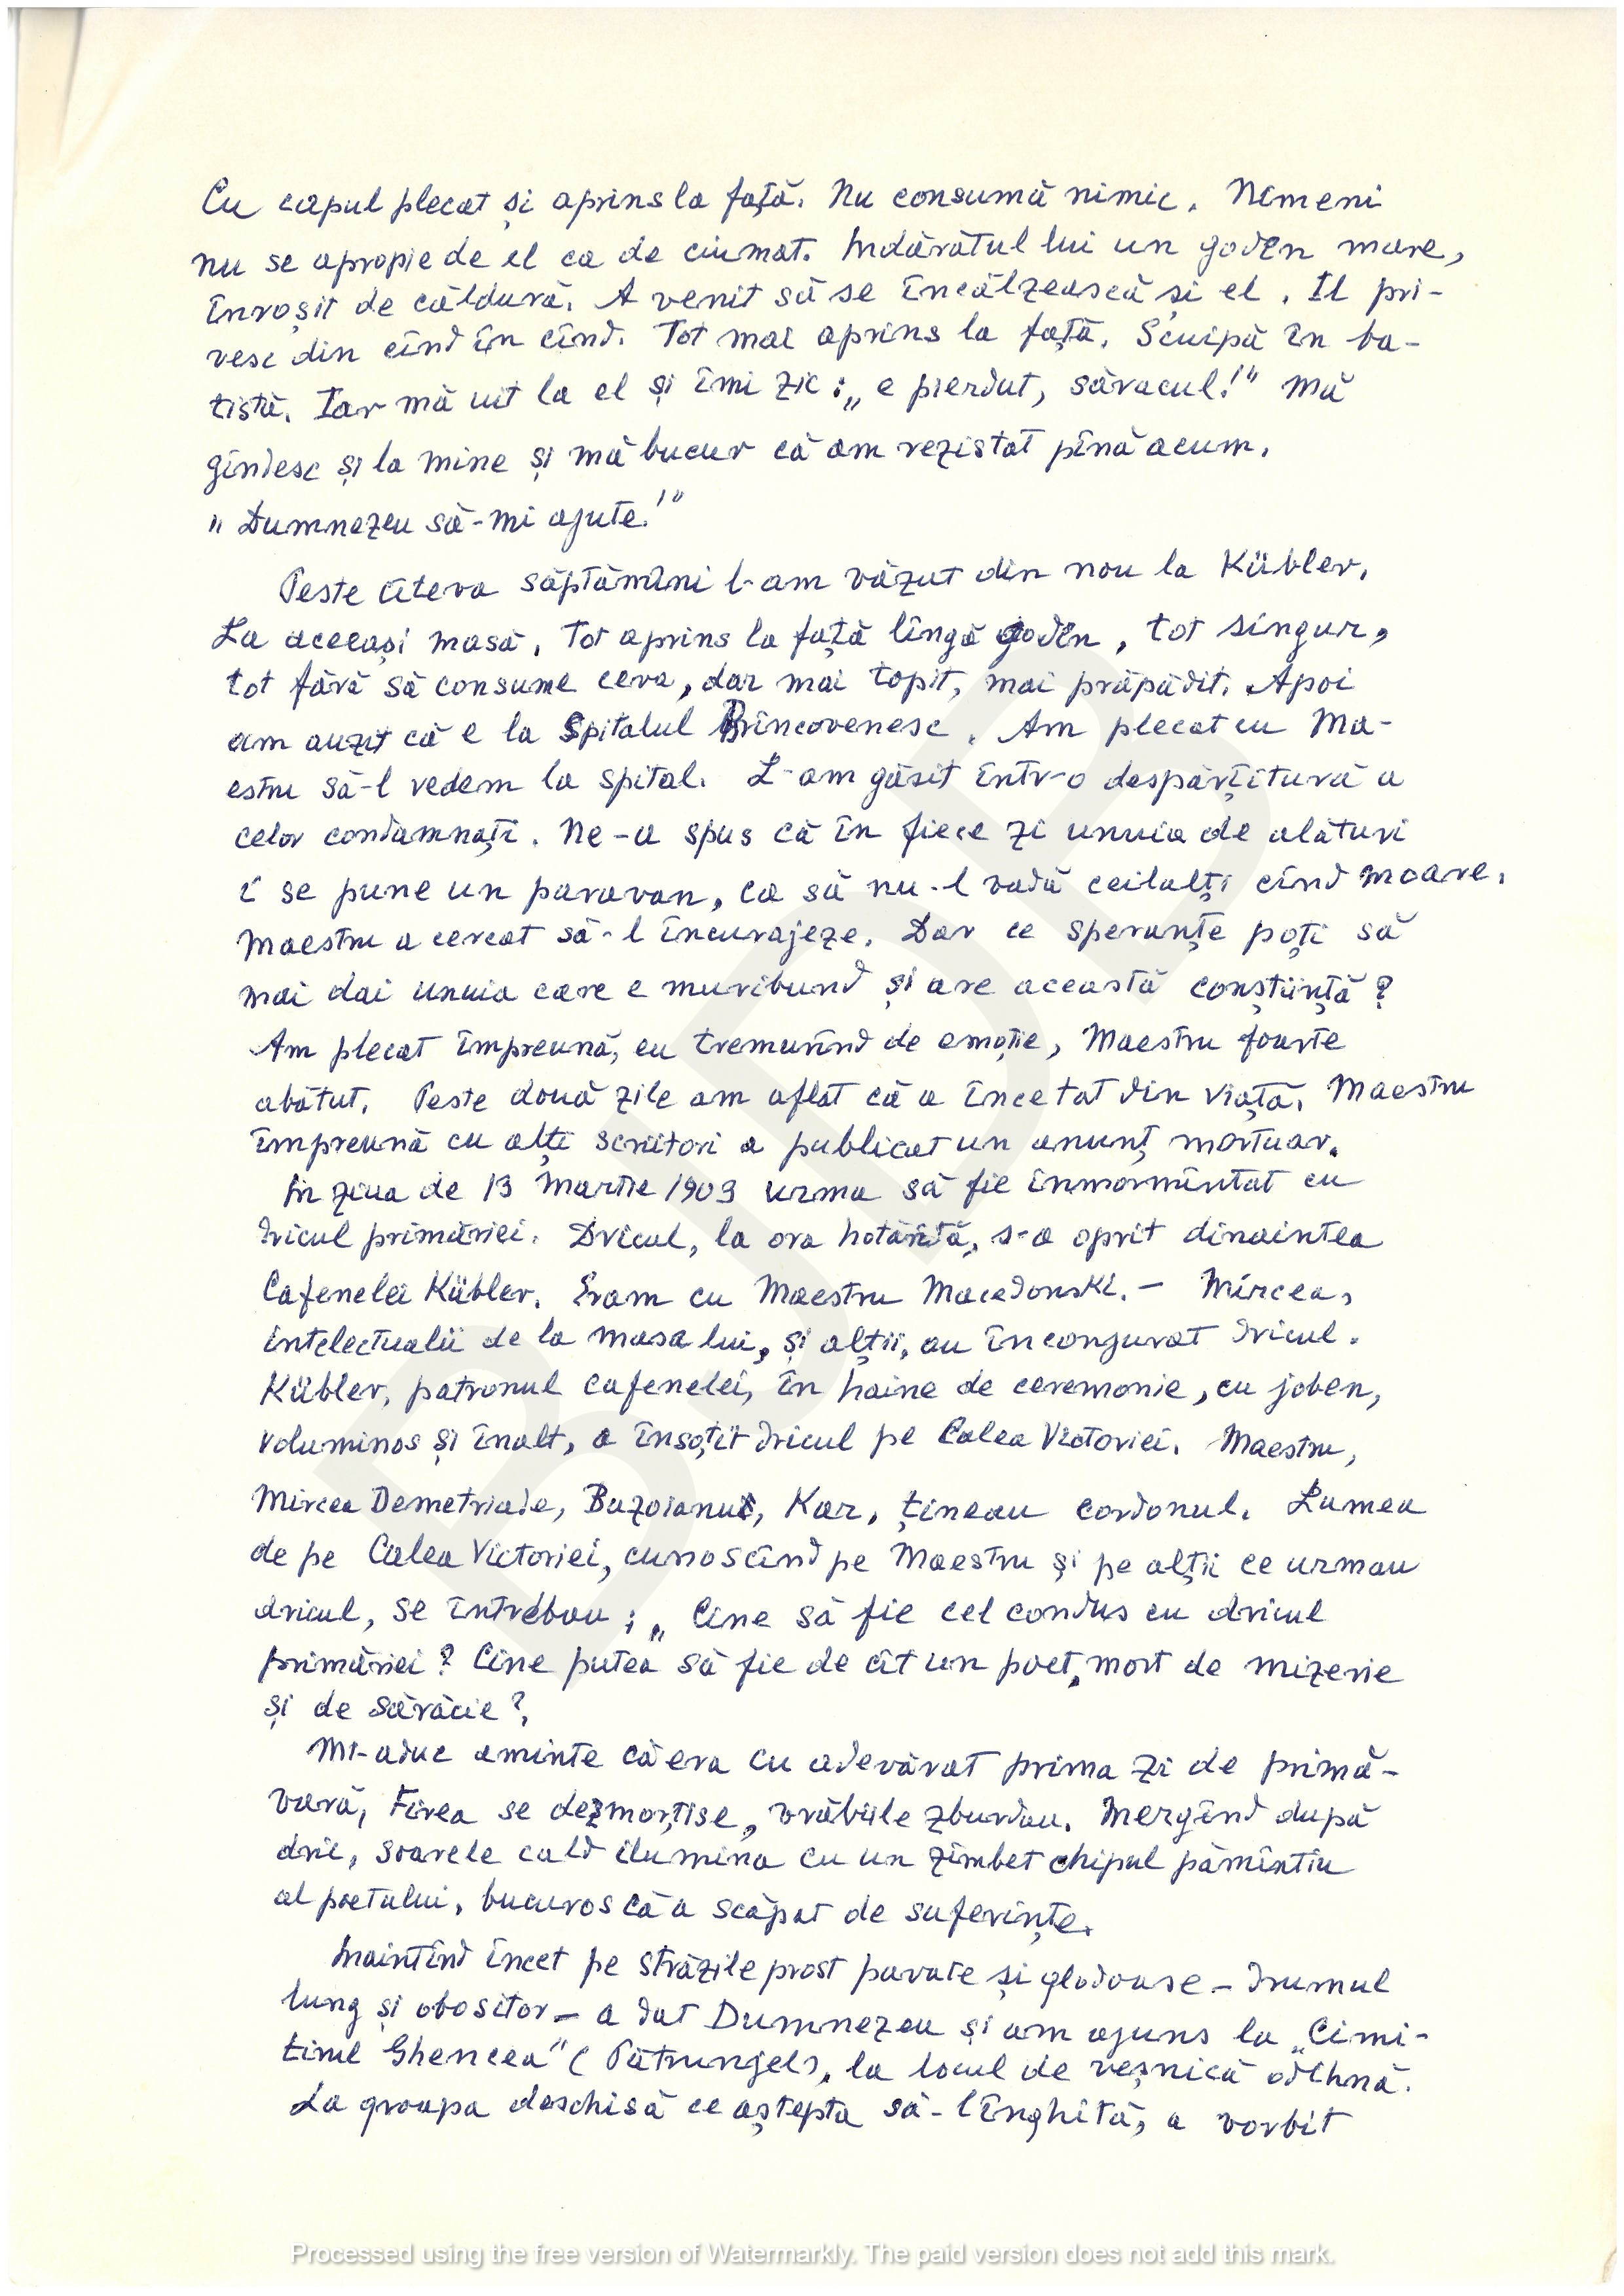 Cu capul plecat și aprins la față. Nu consumă nimic. Nimeni
nu se apropie de el ca de ciumat. Indărătul lui un godin mare,
înroșit de căldură. A venit să se încălzească și el. Il pri-
vesc din cînd în cînd. Tot mai aprins la față. Scuipă în ba-
tistă. Iar mă uit la el și îmi zic: „e pierdut, săracul!” Mă
gîndesc și la mine și mă bucur că am rezistat pînă acum.
„Dumnezeu să-mi ajute!”
Peste cîteva săptămîni l-am văzut din nou la Kübler.
La aceeași masă. Tot aprins la față lîngă godin, tot singur,
tot fără să consume ceva, dar mai topit, mai prăpădit. Apoi
am auzit că e la Spitalul Brîncovenesc. Am plecat cu Ma-
estru să-l vedem la spital. L-am găsit într-o despărțitură a
celor condamnați. Ne-a spus că în fiece zi unuia de alături
i se pune un paravan, ca să nu-l vadă ceilalți cînd moare.
Maestru a cercat să-l încurajeze. Dar ce speranțe poți să
mai dai unuia care e muribund și are această conștiință?
Am plecat împreună, eu tremurînd de emoție, Maestru foarte
abătut. Peste două zile am aflat că a încetat din viață. Maestru
împreună cu alți scriitori a publicat un anunț mortuar.
In ziua de 13 Martie 1909 urma să fie înmormîntat cu
dricul primăriei. Dricul, la ora hotărîtă, s-a oprit dinaintea
Cafenelei Kübler. Eram cu Maestru Macedonski. – Mircea,
intelectualii de la masa lui, și alții, au înconjurat dricul.
Kübler, patronul cafenelei, în haine de ceremonie, cu joben,
voluminos și înalt, a însoțit dricul pe Calea Victoriei. Maestru,
Mircea Demetriade, Bazoianu, Kar, țineau cordonul. Lumea
de pe Calea Victoriei, cunoscînd pe Maestru și pe alții ce urmau
dricul, se întrebau; „Cine să fie cel condus cu dricul
primăriei? Cine putea să fie de cît un poet, mort de mizerie
și de sărăcie?,
Mi-aduc aminte că era cu adevărat prima zi de primă-
vară, Firea se dezmorțise, vrăbiile zburdau. Mergînd după
dric, soarele cald ilumina cu un zîmbet chipul pămîntiu
al poetului, bucuros că a scăpat de suferințe.
Inaintînd încet pe străzile prost pavate și glodoase – drumul
lung și obositor – a dat Dumnezeu și am ajuns la „Cimi-
tirul Ghencea” (Pătrunjel), la locul de veșnică odihnă.
La groapa deschisă ce aștepta să-l înghită, a vorbit
BJDB
Processed using the free version of Watermarkly. The paid version does not add this mark.